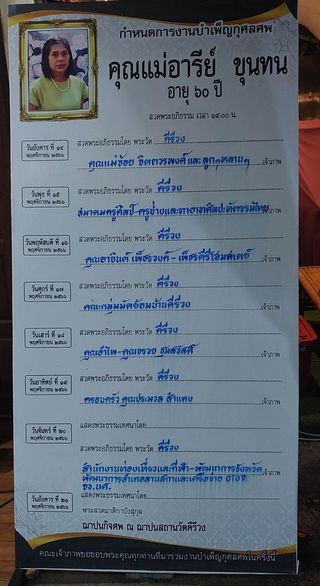 กำหนดการงานบำเพ็ญกุศลศพ
คุณแม่อารีย์ ขุนทน
อายุ ๖๐ ปี
สวดพระอภิธรรม เวลา ๑๙.๐๐ น.
วันอังคาร ที่ ๑๔ พฤศจิกายน ๒๕๖๖
สวดพระอภิธรรมโดย พระวัด คีรีวง
คุณแม่ย้อย จิตตาวรพงศ์ และลูกๆหลานๆ เจ้าภาพ
วันพุธ ที่ ๑๕ พฤศจิกายน ๒๕๖๖
สวดพระอภิธรรมโดย พระวัด คีรีวง
สมาคมครูศิลป์-ครูช่างและทายาทศิลปะหัตถกรรมไทย เจ้าภาพ
วันพฤหัสบดี ที่ ๑๖ พฤศจิกายน ๒๕๖๖
สวดพระอภิธรรมโดย พระวัด คีรีวง
คุณอาอินต์ เพ็ชรวงศ์-เพ็ชรคีรีโฮมสเตย์ เจ้าภาพ
วันศุกร์ ที่ ๑๗ พฤศจิกายน ๒๕๖๖
สวดพระอภิธรรมโดย พระวัด คีรีวง
คณะกลุ่มมัดย้อมบ้านคีรีวง เจ้าภาพ
วันเสาร์ ที่ ๑๘ พฤศจิกายน ๒๕๖๖
สวดพระอภิธรรมโดย พระวัด คีรีวง
คุณอำไพ-คุณขรวย เจ้าภาพ
วันอาทิตย์ ที่ ๑๙ พฤศจิกายน ๒๕๖๖
สวดพระอภิธรรมโดย พระวัด คีรีวง
ครอบครัว คุณประมวล สำแดง เจ้าภาพ
วันจันทร์ ที่ ๒๐ พฤศจิกายน ๒๕๖๖
แสดงพระธรรมเทศนาโดย
สวดพระอภิธรรมโดย พระวัด คีรีวง
สำนักงานท่องเที่ยวและกีฬา-พัฒนาการจังหวัด
พัฒนาการอำเภอลานสกาและเครือข่าย OTOP เจ้าภาพ
จว.นศ.
วันอังคาร ที่ ๒๑ พฤศจิกายน ๒๕๖๖
แสดงพระธรรมเทศนาโดย
พระสวดมาติกาบังสุกุล
ฌาปนกิจศพ ณ ฌาปนสถานวัดคีรีวง
คณะเจ้าภาพขอขอบพระคุณทุกท่านที่มาร่วมงานบำเพ็ญกุศลศพในครั้งนี้